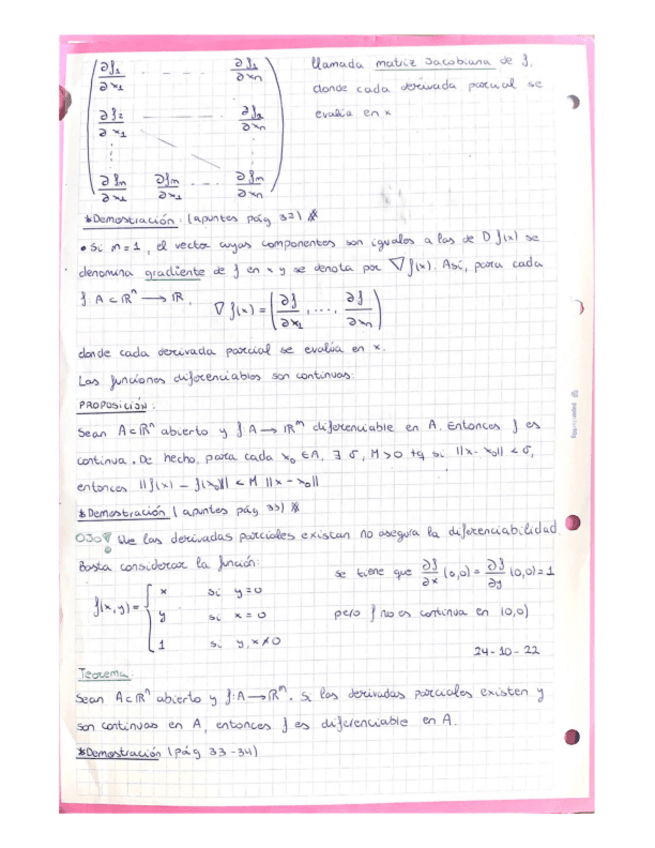 ∂f1/∂x1 - - - - ∂f1/∂xn llamada matriz Jacobiana de f,
donde cada derivada parcial se
∂f2/∂x1 ∂f2/∂xn evalúa en x
∂fm/∂x1 ∂fm/∂x1 - - - ∂fm/∂xn
*Demostración: (apuntes pág 32) *
• Si m=1, el vector cuyas componentes son iguales a las de Df(x) se
denomina gradiente de f en x y se denota por ∇f(x). Así, para cada
f: A ⊂ ℝⁿ → ℝ, ∇f(x) = (∂f/∂x1, ..., ∂f/∂xn)
donde cada derivada parcial se evalúa en x.
Las funciones diferenciables son continuas:
PROPOSICIÓN:
Sean A⊂ℝⁿ abierto y f: A → ℝᵐ diferenciable en A. Entonces f es
continua. De hecho, para cada x₀ ∈ A, ∃ δ, M>0 tq si ||x-x₀|| < δ,
entonces ||f(x) - f(x₀)|| < M ||x-x₀||
*Demostración (apuntes pág 33) *
OJO! Que las derivadas parciales existan no asegura la diferenciabilidad.
Basta considerar la función:
f(x,y) = { x si y=0
y si x=0
1 si y,x≠0
se tiene que ∂f/∂x (0,0) = ∂f/∂y (0,0) = 1
pero f no es continua en (0,0)
24-10-22
Teorema:
Sean A⊂ℝⁿ abierto y f: A → ℝᵐ. Si las derivadas parciales existen y
son continuas en A, entonces f es diferenciable en A.
*Demostración (pág 33-34)